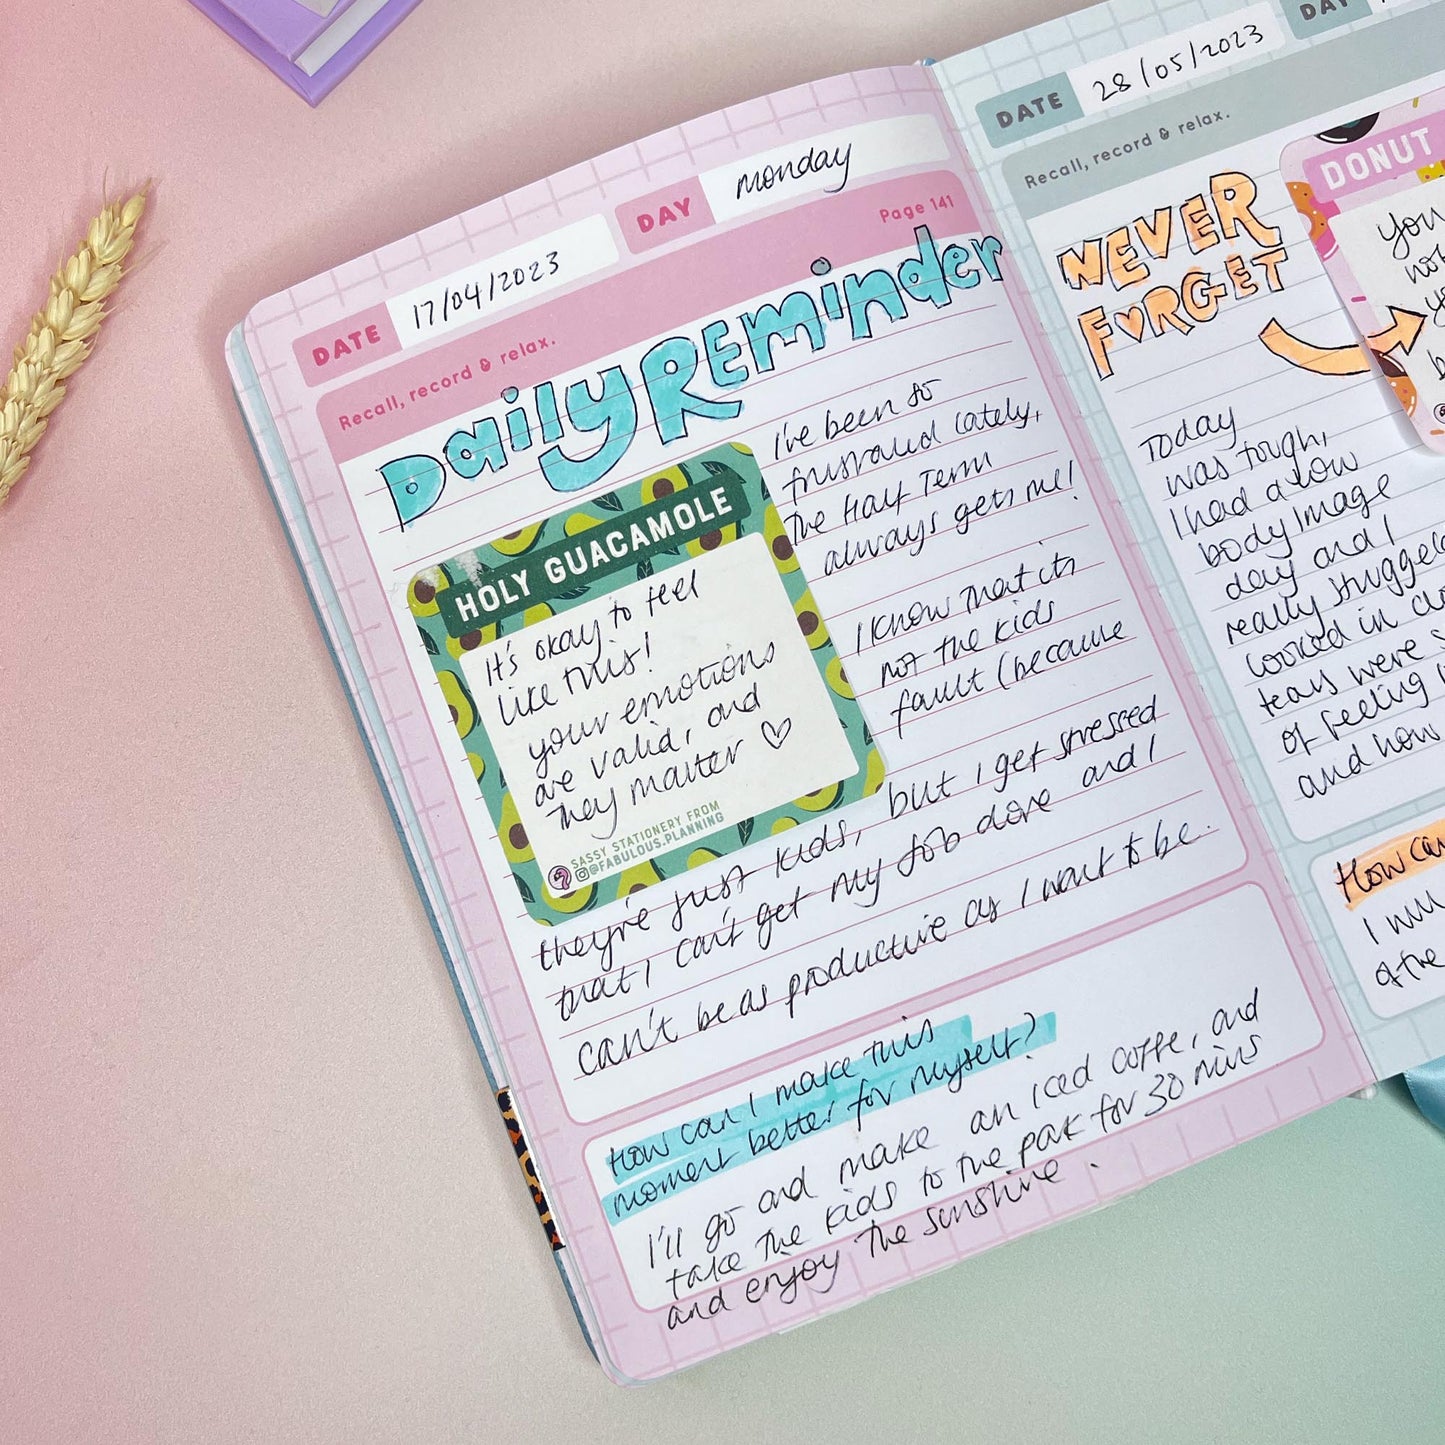 DATE 17/04/2023 DAY monday
Recall, record & relax. Page 141
Daily Reminder
HOLY GUACAMOLE
It's okay to feel
like this!
your emotions
are valid, and
they matter
SASSY STATIONERY FROM
@FABULOUS.PLANNING
I've been so
frustrated lately,
The Half Term
always gets me!
I know that its
not the kids
fault (because
they're just kids, but I get stressed
that I can't get my job done and I
can't be as productive as I want to be.
How can I make this
moment better for myself?
I'll go and make an iced coffe, and
take the kids to the park for 30 mins
and enjoy the sunshine.
DATE 28/05/2023 DAY
Recall, record & relax.
NEVER
FORGET
DONUT
you
Today
was tough,
I had a low
body image
day and I
really
looked in
tears were
of feeling
and how
How can
I will
of the